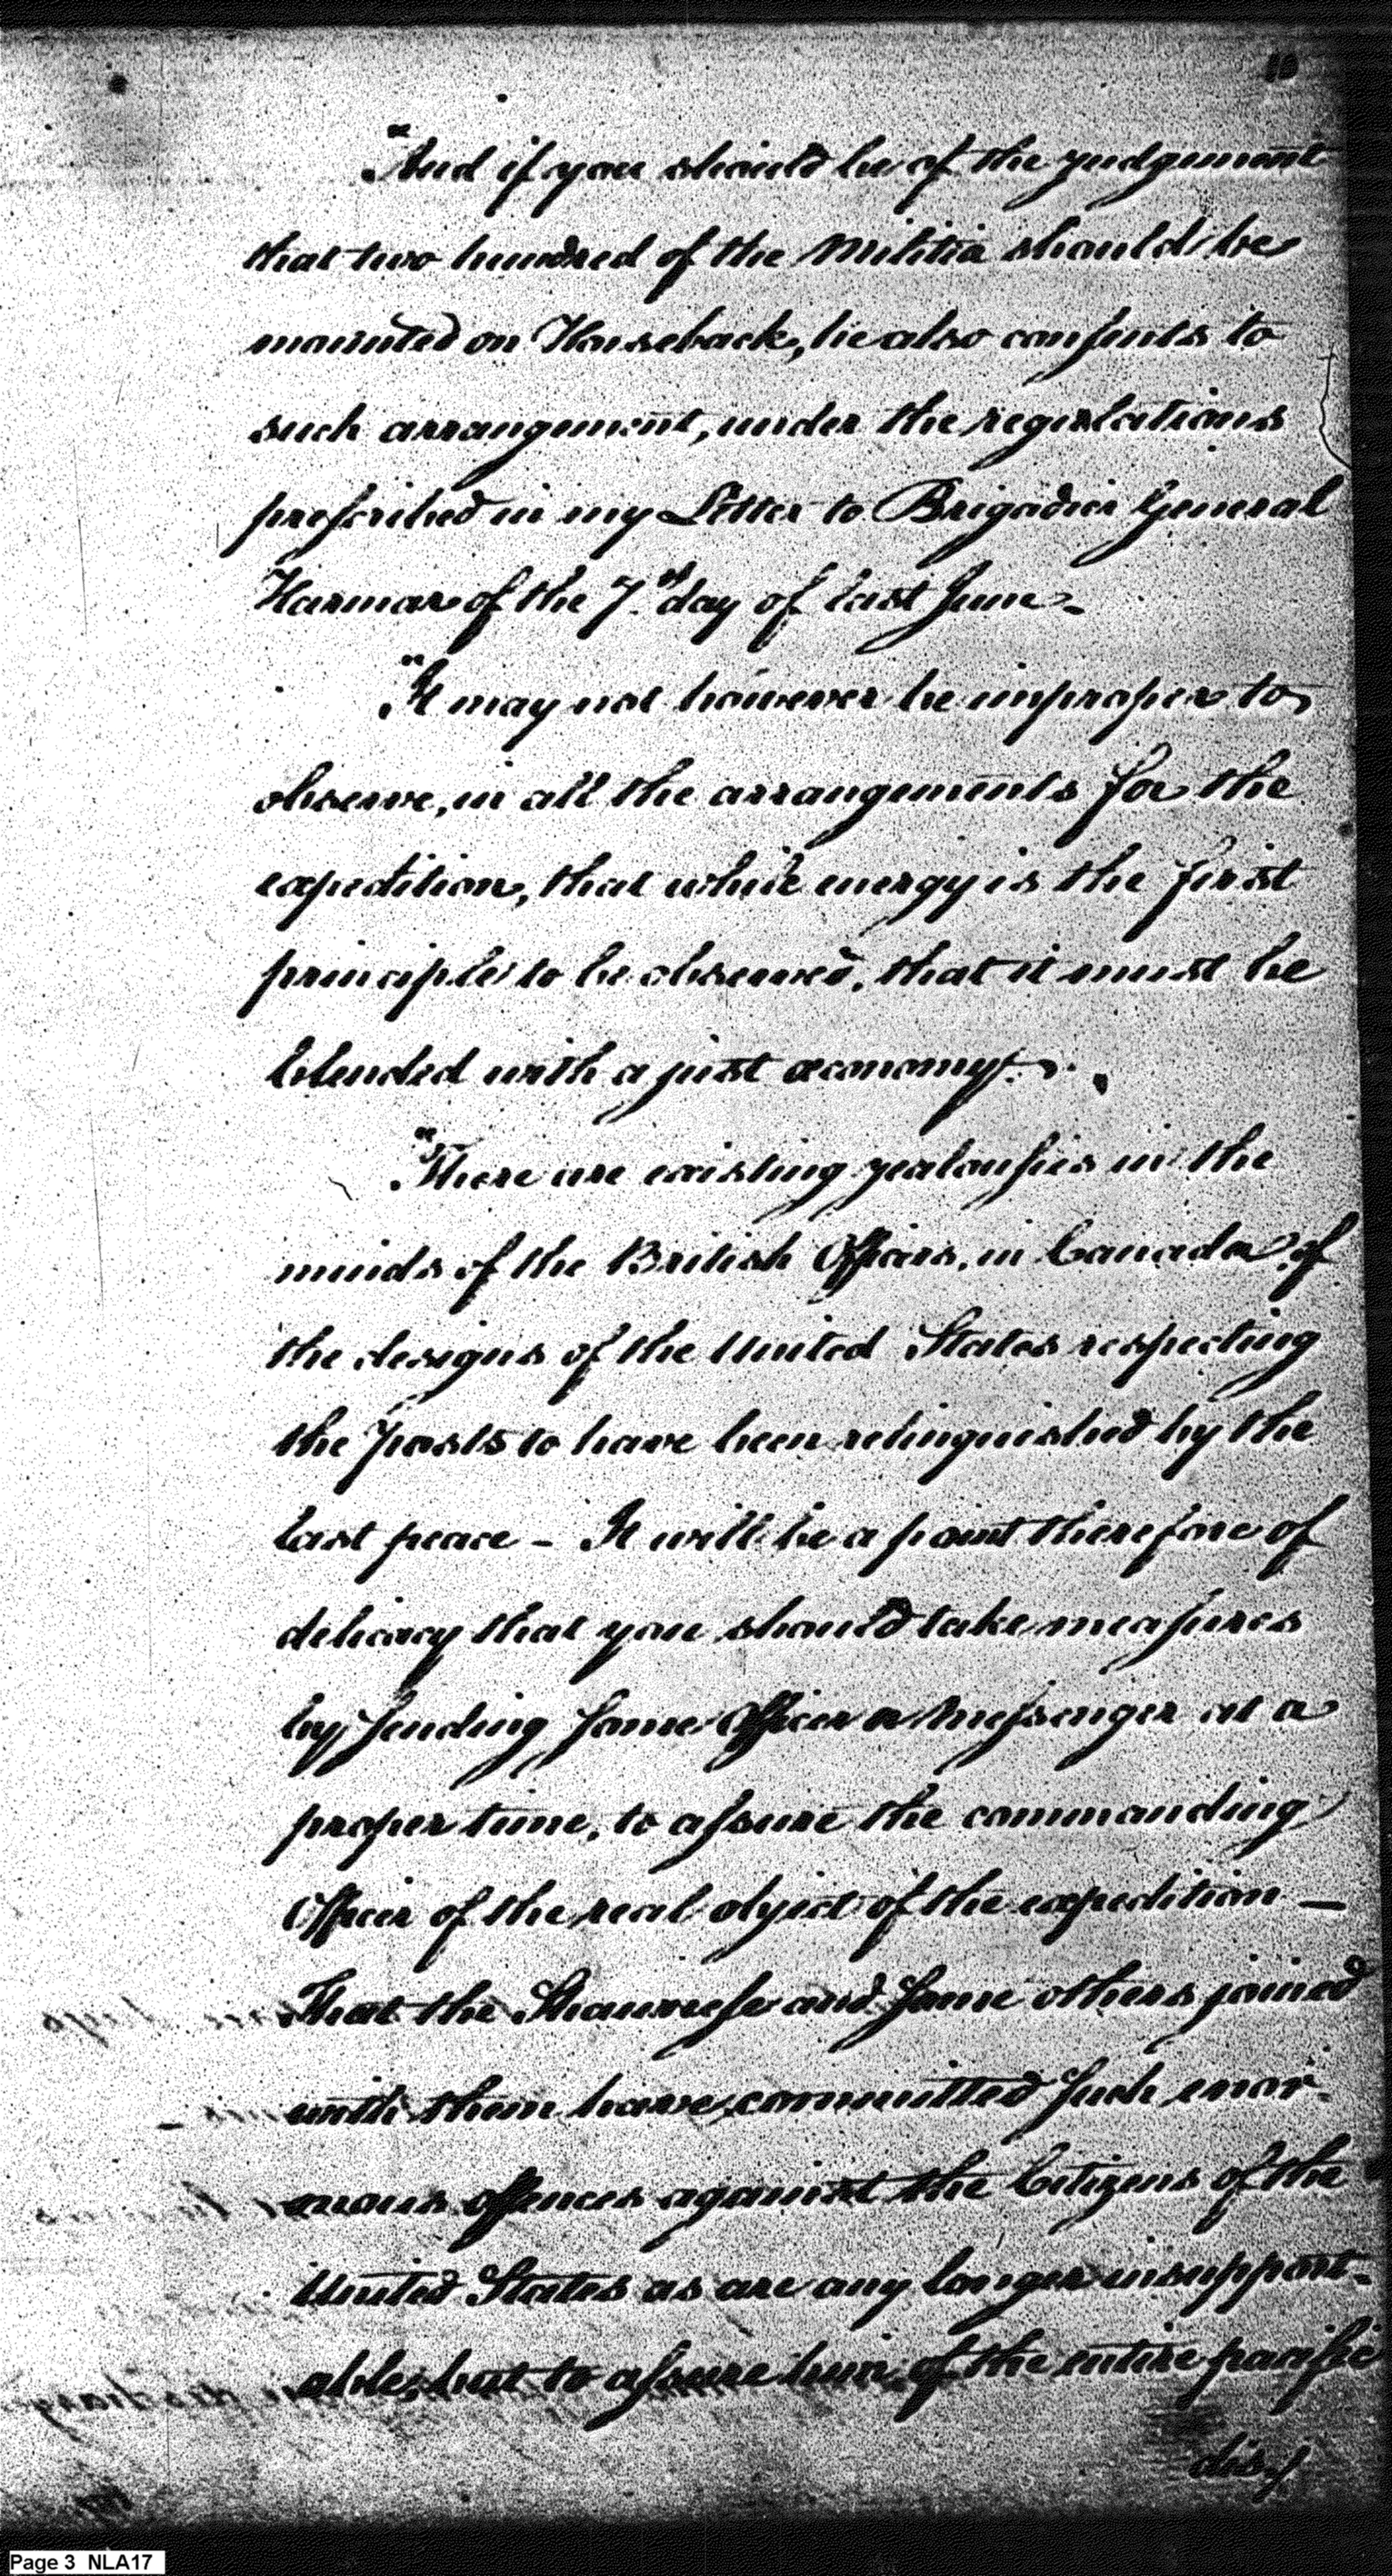 10
"And if you should be of the judgement
that two hundred of the Militia should be
mounted on Horseback, he also consents to
such arrangement, under the regulations
prescribed in my Letter to Brigadier General
Harmar of the 7th day of last June.
"It may not however be improper to
observe, in all the arrangements for the
expedition, that while energy is the first
principle to be observed, that it must be
blended with a just œconomy.
"There are existing jealousies in the
minds of the British Officers, in Canada of
the designs of the United States respecting
the posts to have been relinquished by the
last peace – It will be a point therefore of
delicacy that you should take measures
by sending some Officer or Messenger at a
proper time, to assure the commanding
Officer of the real object of the expedition –
That the Shawnese and some others joined
with them have committed such enor-
mous offences against the Citizens of the
United States as are any longer insupport-
able; but to assure him of the entire pacific
dis:/
Page 3 NLA17